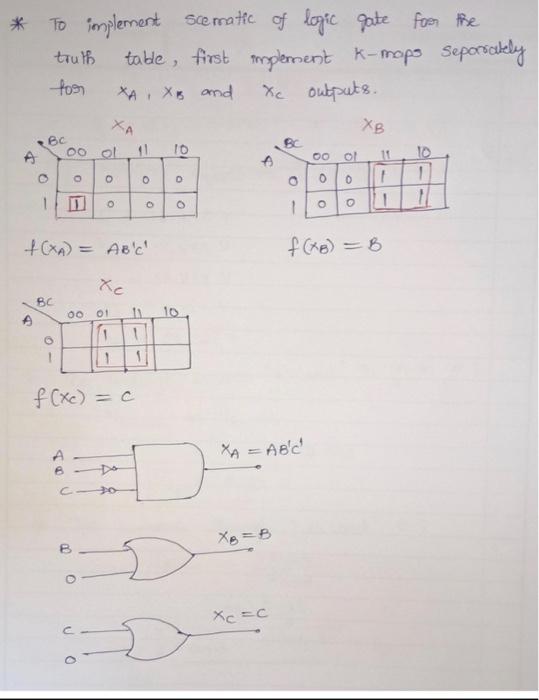 * To implement scematic of logic gate foor the
truth table, first implement K-maps seporately
foor XA, XB and XC outputs.
XA
BC
A 00 01 11 10
0 0 0 0 0
1 1 0 0 0
f(XA) = AB'C'
XB
BC
A 00 01 11 10
0 0 0 1 1
1 0 0 1 1
f(XB) = B
XC
BC
A 00 01 11 10
0 1 1
1 1 1
f(XC) = C
A
B
C
XA = AB'C'
B
0
XB = B
C
0
XC = C